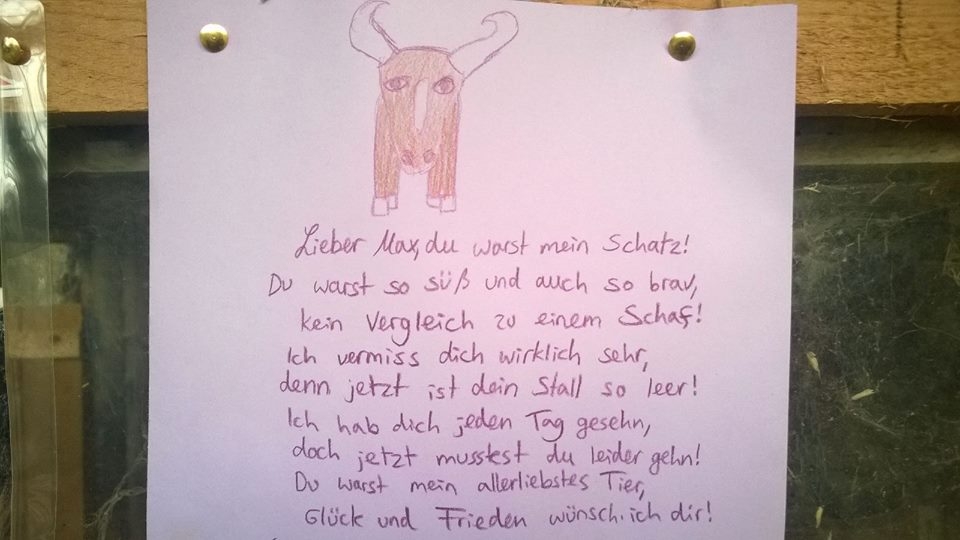 Lieber Max, du warst mein Schatz!
Du warst so süß und auch so brav,
kein Vergleich zu einem Schaf!
Ich vermiss dich wirklich sehr,
denn jetzt ist dein Stall so leer!
Ich hab dich jeden Tag gesehn,
doch jetzt musstest du leider gehn!
Du warst mein allerliebstes Tier,
Glück und Frieden wünsch ich dir!